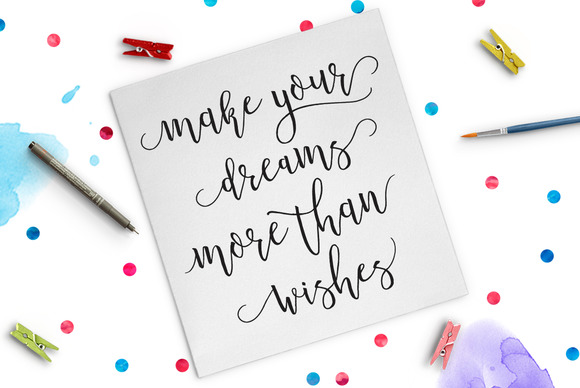 make your
dreams
more than
wishes